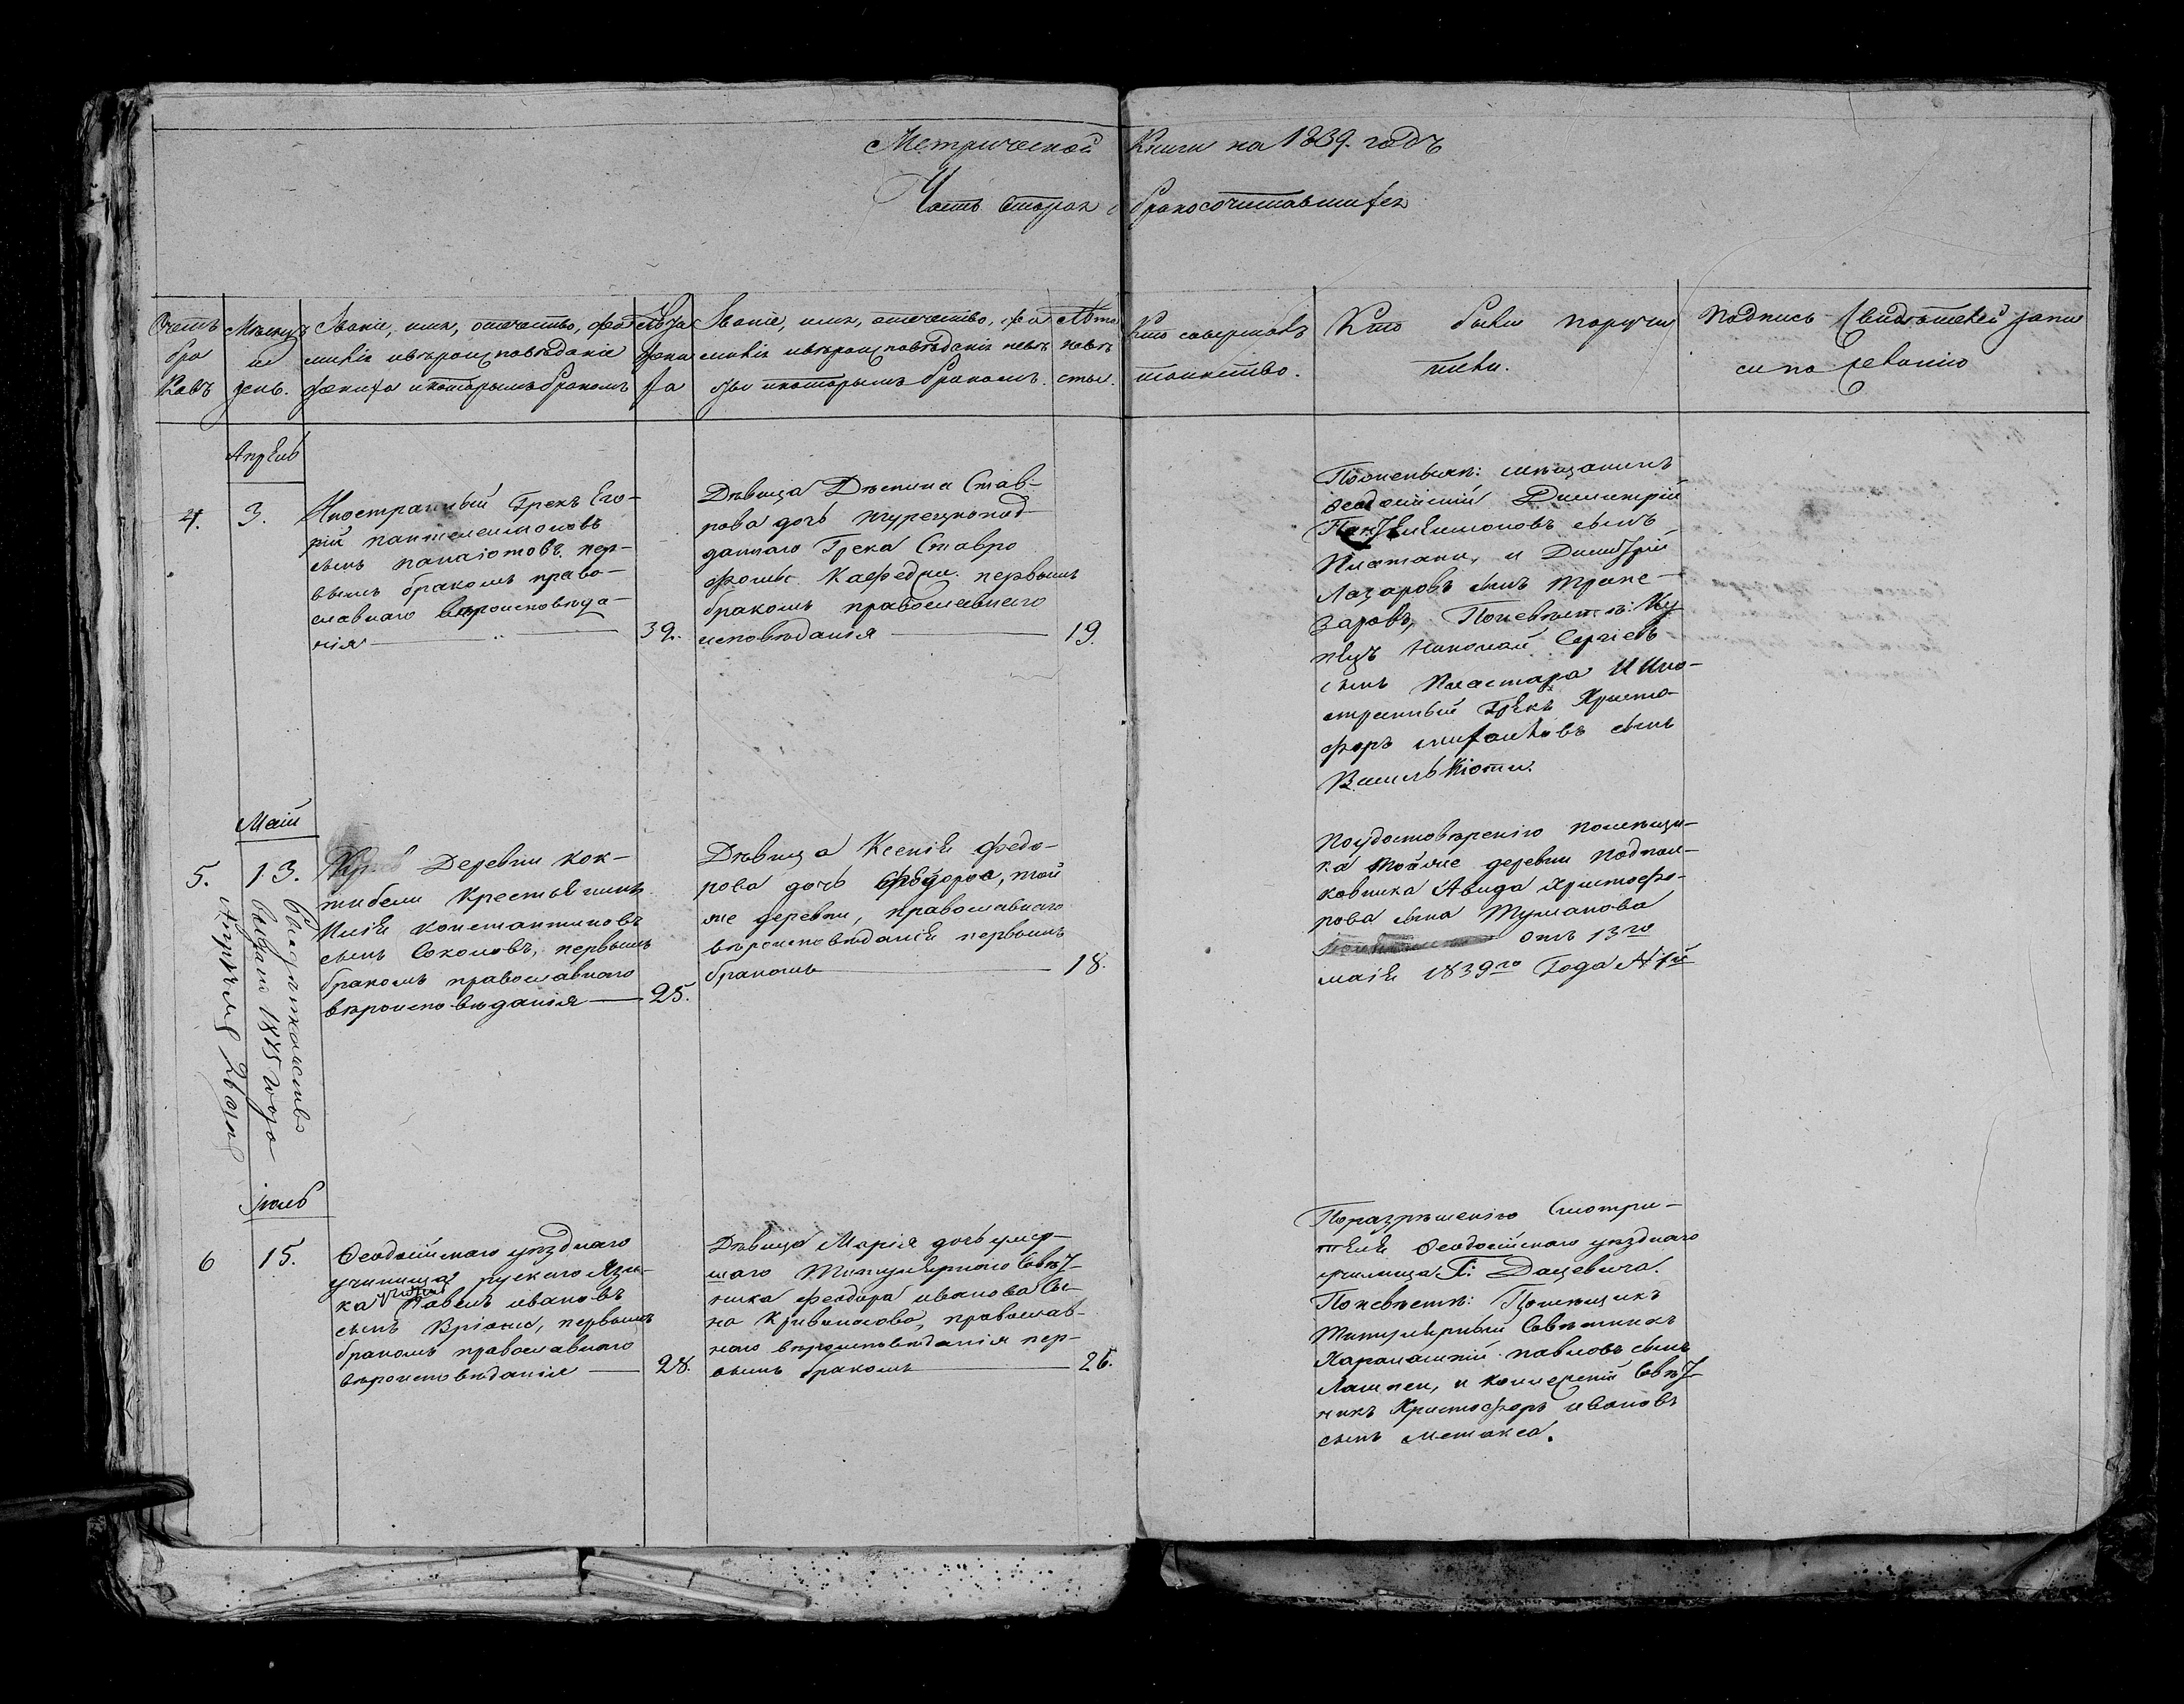 Метрической Книги на 1839. годъ
Часть вторая о бракосочетавшихся
Счетъ бра ковъ
Мѣсяцъ и день.
Званіе, имя, отечество, фа милія и вѣроисповѣданіе жениха и которымъ бракомъ
Лѣта жени ха
Званіе, имя, отечество, фа милія и вѣроисповѣданія невѣ сты и которымъ бракомъ.
Лѣта невѣ сты.
Кто совершалъ таинство.
Кто были поручи тели.
Подпись свидѣтелей запи си по желанію
Апрель
4.
3.
Иностранный Грекъ Его-
рій Пантелеимоновъ
сынъ Панаіотовъ. пер-
вымъ бракомъ право-
славнаго вѣроисповѣда-
нія
39.
Дѣвица Дѣспина Став-
рова дочь турецкопод-
даннаго Грека Ставро
первымъ
бракомъ православнаго
исповѣданія
19.
По женихѣ: мѣщанинъ
Ѳеодосійскій Димитрій
сынъ
и Димитрій
Лазаровъ сынъ Трапе-
заровъ, По невѣстѣ: Ку
пецъ Николай Сергіевъ
сынъ И Ино-
странный Грекъ Христо-
форъ Михайловъ сынъ
Май
5.
13.
Деревни Кок-
тибели Крестьянинъ
Илія Константиновъ
сынъ Соколовъ, первымъ
бракомъ православнаго
вѣроисповѣданія
25.
Дѣвица Ксенія Федо-
рова дочь Федорова, той
же деревни, православнаго
вѣроисповѣданія первымъ
бракомъ
18.
По удостовѣренію помѣщи-
ка той же деревни Подпол-
ковника Авида Христофо-
рова сына Туманова
отъ 13го
маія 1839го Года № 1й
Свидѣтельство
выдано 1875 года
Апрѣля 26 дня
Іюль
6
15.
Ѳеодосійскаго уѣзднаго
училища рускаго Язы-
ка учитель Павелъ Ивановъ
сынъ Вріони, первымъ
бракомъ православнаго
вѣроисповѣданія
28.
Дѣвица Марія дочь умер-
шаго Титулярнаго Совѣт-
ника Феодора Иванова Сы-
на Кривоносова, православ-
наго вѣроисповѣданія пер-
вымъ бракомъ
26.
По разрѣшенію Смотри-
теля Ѳеодосійскаго уѣзднаго
училища Г: Дацевича.
По невѣстѣ: Помѣщикъ
Титулярный Совѣтникъ
Харалампій Павловъ сынъ
Лампси, и колежскій Совѣт-
никъ Христофоръ Ивановъ
сынъ Метакса.